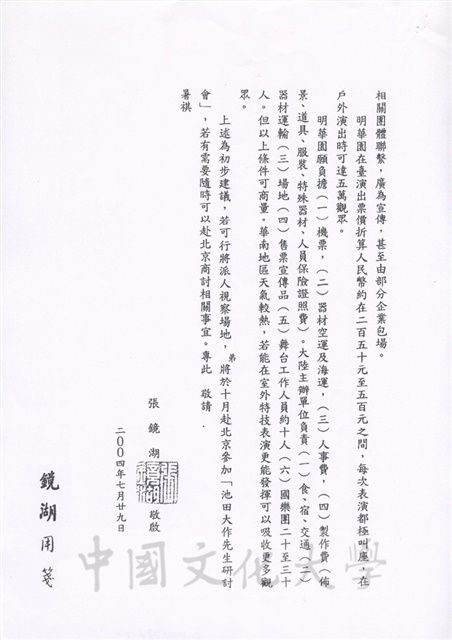 相關團體聯繫，廣為宣傳，甚至由部分企業包場。
明華園在臺演出票價折算人民幣約在二百五十元至五百元之間，每次表演都極叫座，在
戶外演出時可達五萬觀眾。
明華園願負擔（一）機票，（二）器材空運及海運，（三）人事費，（四）製作費（佈
景、道具、服裝、特殊器材、人員保險證照費）。大陸主辦單位負責（一）食、宿、交通（二）
器材運輸（三）場地（四）售票宣傳品（五）舞台工作人員約十人（六）國樂團二十至三十
人。但以上條件可商量。華南地區天氣較熱，若能在室外特技表演更能發揮可以吸收更多觀
眾。
上述為初步建議，若可行將派人視察場地，弟將於十月赴北京參加「池田大作先生研討
會」，若有需要隨時可以赴北京商討相關事宜。專此　敬請
暑祺
張鏡湖　敬啟
二００四年七月廿九日
鏡湖用箋
中國文化大學